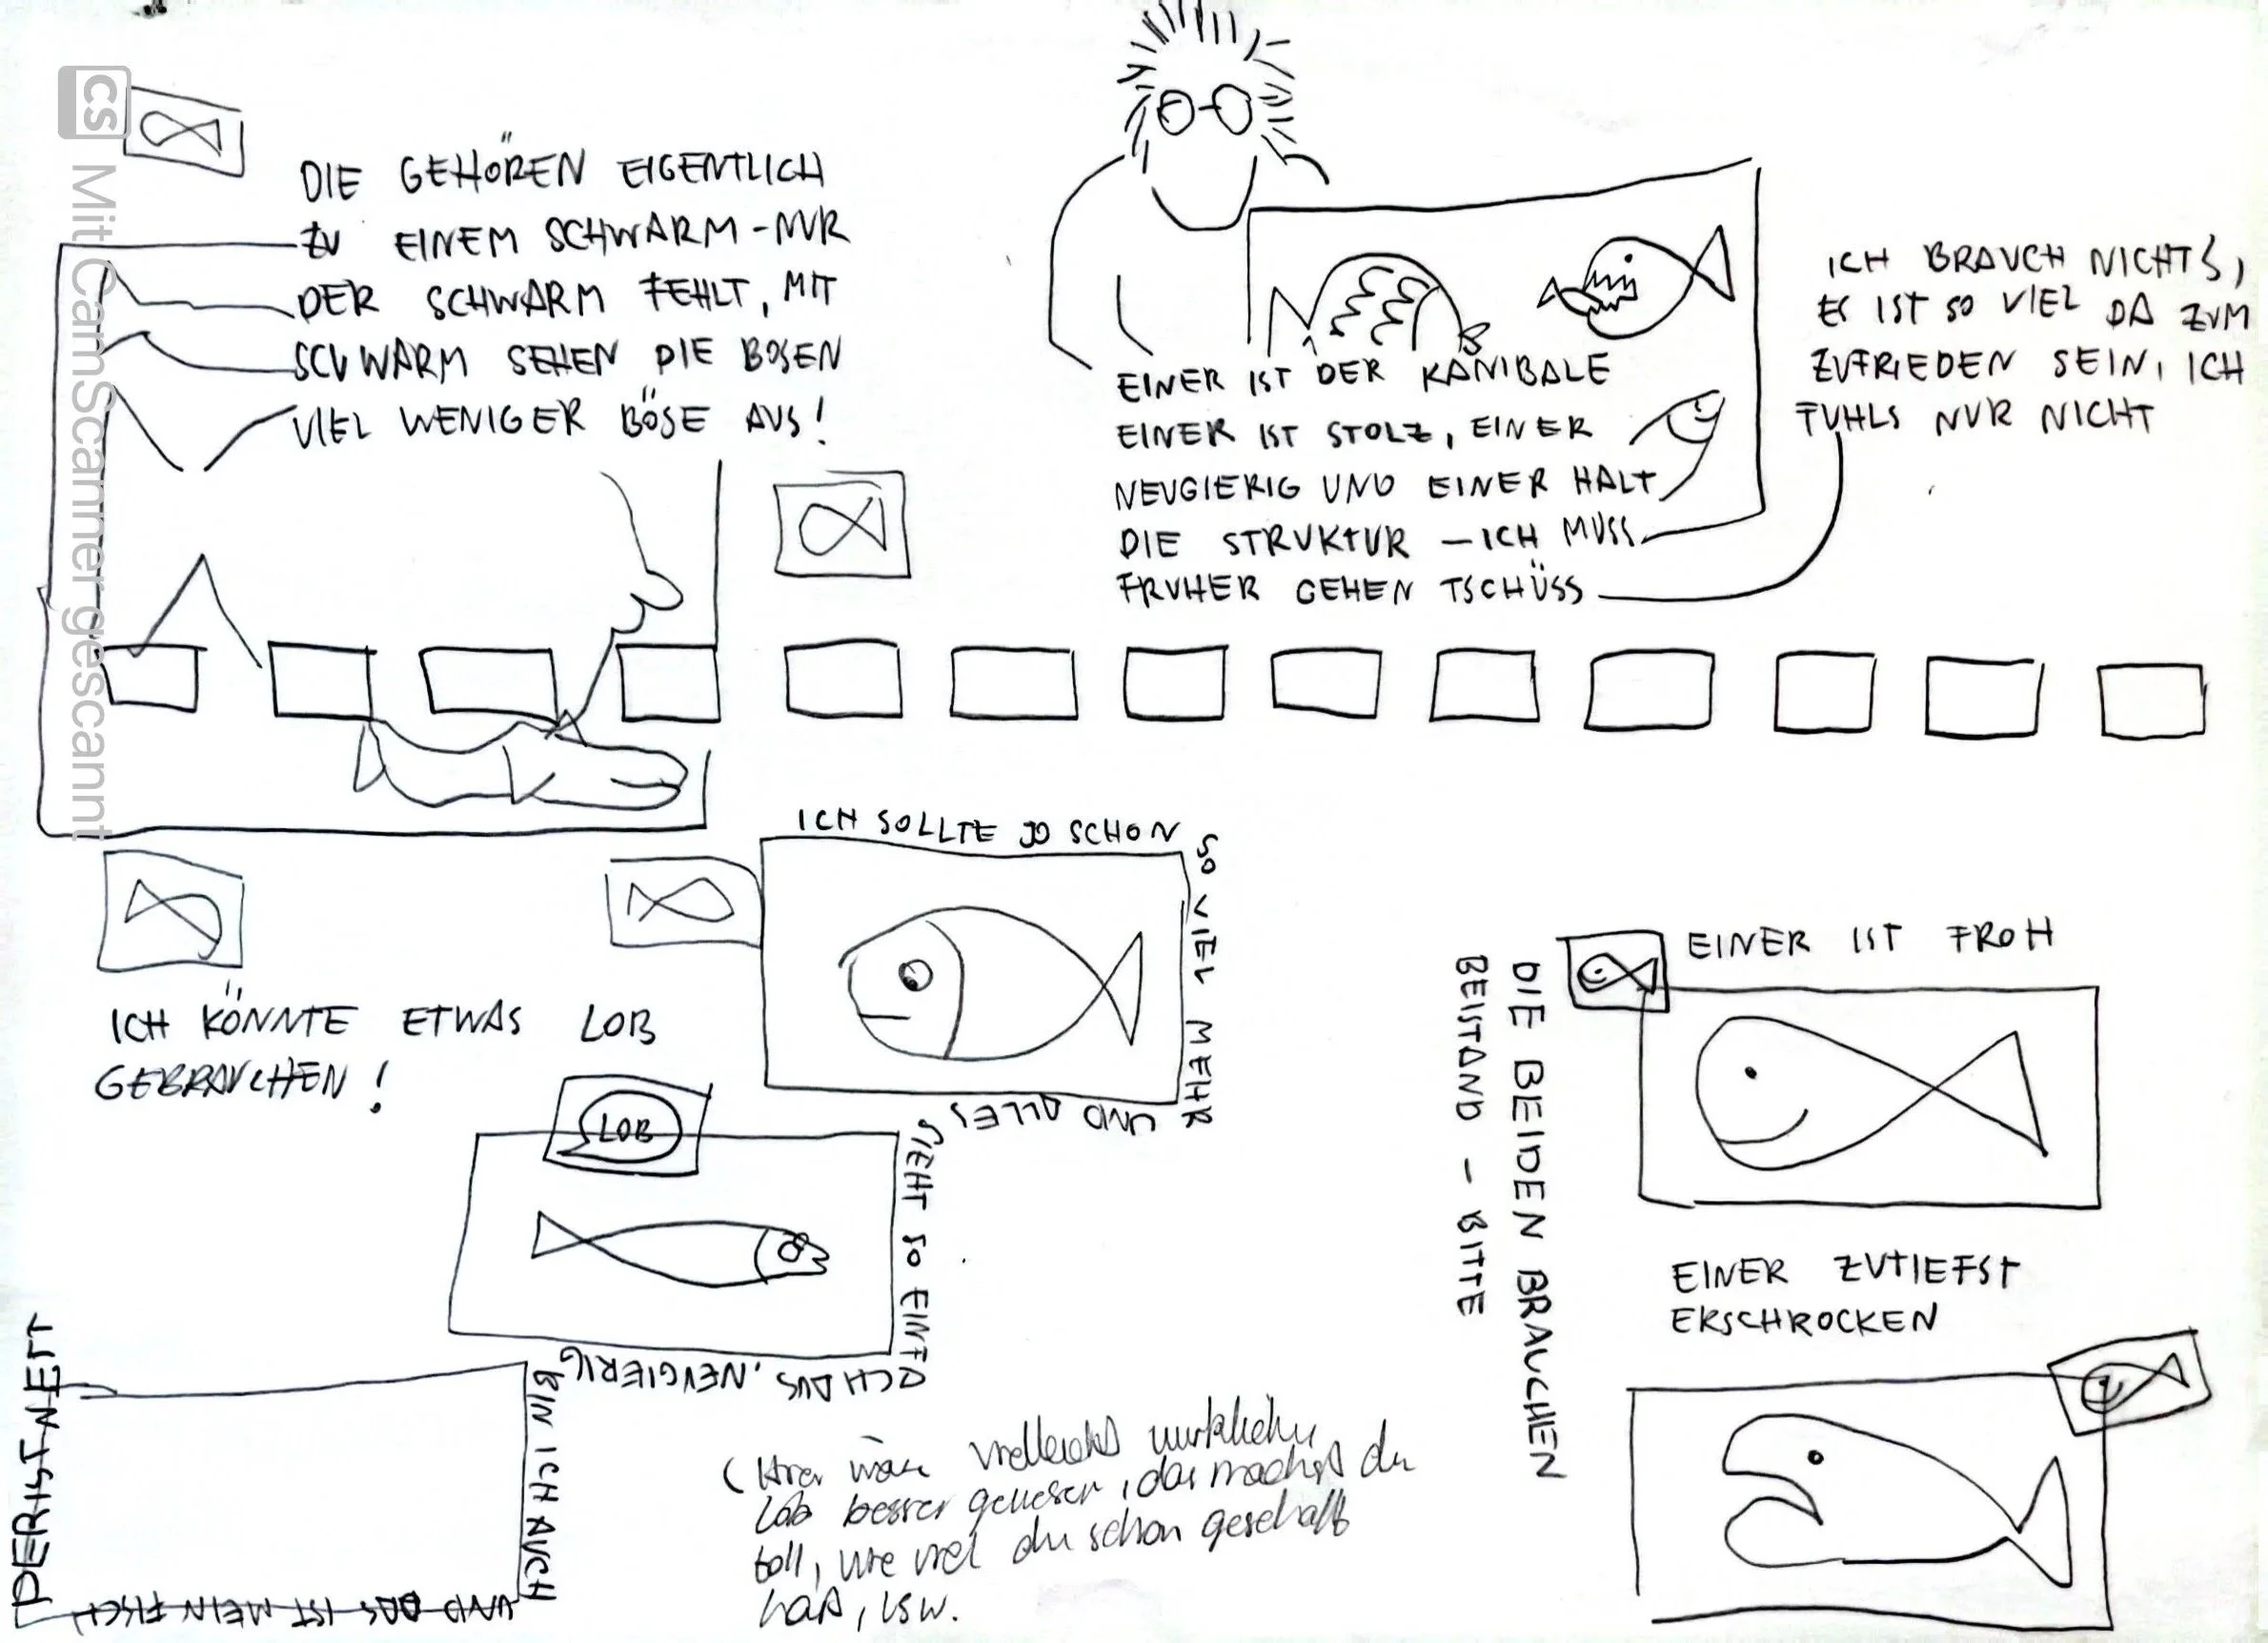 CS Mit CamScanner gescannt
DIE GEHÖREN EIGENTLICH
ZU EINEM SCHWARM - NUR
DER SCHWARM FEHLT, MIT
SCHWARM SEHEN DIE BOSEN
VIEL WENIGER BÖSE AUS!
EINER IST DER KANIBALE
EINER IST STOLZ, EINER
NEUGIERIG UND EINER HALT
DIE STRUKTUR - ICH MUSS
FRUHER GEHEN TSCHÜSS
ICH BRAUCH NICHTS,
ES IST SO VIEL DA ZUM
ZUFRIEDEN SEIN, ICH
FUHLS NUR NICHT
ICH SOLLTE JO SCHON
SO VIEL MEHR
UND ALLES
ICH KÖNNTE ETWAS LOB
GEBRAUCHEN!
LOB
SIEHT SO EINFA
CH AUS. NEUGIERIG
BIN ICH AUCH
UND DAS IST MEIN FISCH
DER IST NETT
(Hier wäre vielleicht wirkliches
Lob besser gewesen, das machst du
toll, wie viel du schon geschafft
hast, usw.
DIE BEIDEN BRAUCHEN
BEISTAND - BITTE
EINER IST FROH
EINER ZUTIEFST
ERSCHROCKEN